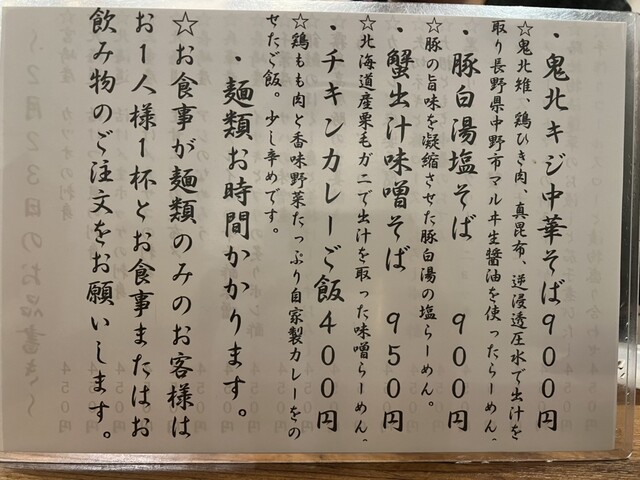 ・鬼北キジ中華そば９００円
☆鬼北雉、鶏ひき肉、真昆布、逆浸透圧水で出汁を
取り長野県中野市マルヰ生醤油を使ったらーめん。
・豚白湯塩そば　９００円
☆豚の旨味を凝縮させた豚白湯の塩らーめん。
・蟹出汁味噌そば　９５０円
☆北海道産栗毛ガニで出汁を取った味噌らーめん。
・チキンカレーご飯４００円
☆鶏もも肉と香味野菜たっぷり自家製カレーをの
せたご飯。少し辛めです。
・麺類お時間かかります。
☆お食事が麺類のみのお客様は
お１人様１杯とお食事またはお
飲み物のご注文をお願いします。
〜２月２３日のお品書き〜